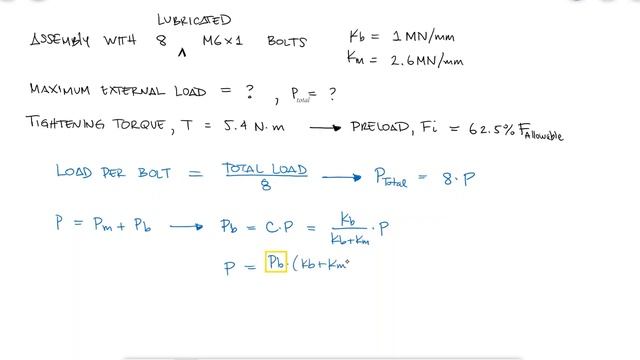 LUBRICATED
ASSEMBLY WITH 8 ^ M6×1 BOLTS
Kb = 1 MN/mm
Km = 2.6 MN/mm
MAXIMUM EXTERNAL LOAD = ? , Ptotal = ?
TIGHTENING TORQUE, T = 5.4 N·m → PRELOAD, Fi = 62.5% FAllowable
LOAD PER BOLT = TOTAL LOAD / 8 → PTotal = 8·P
P = Pm + Pb → Pb = C·P = Kb / Kb+Km · P
P = Pb·(Kb+Km